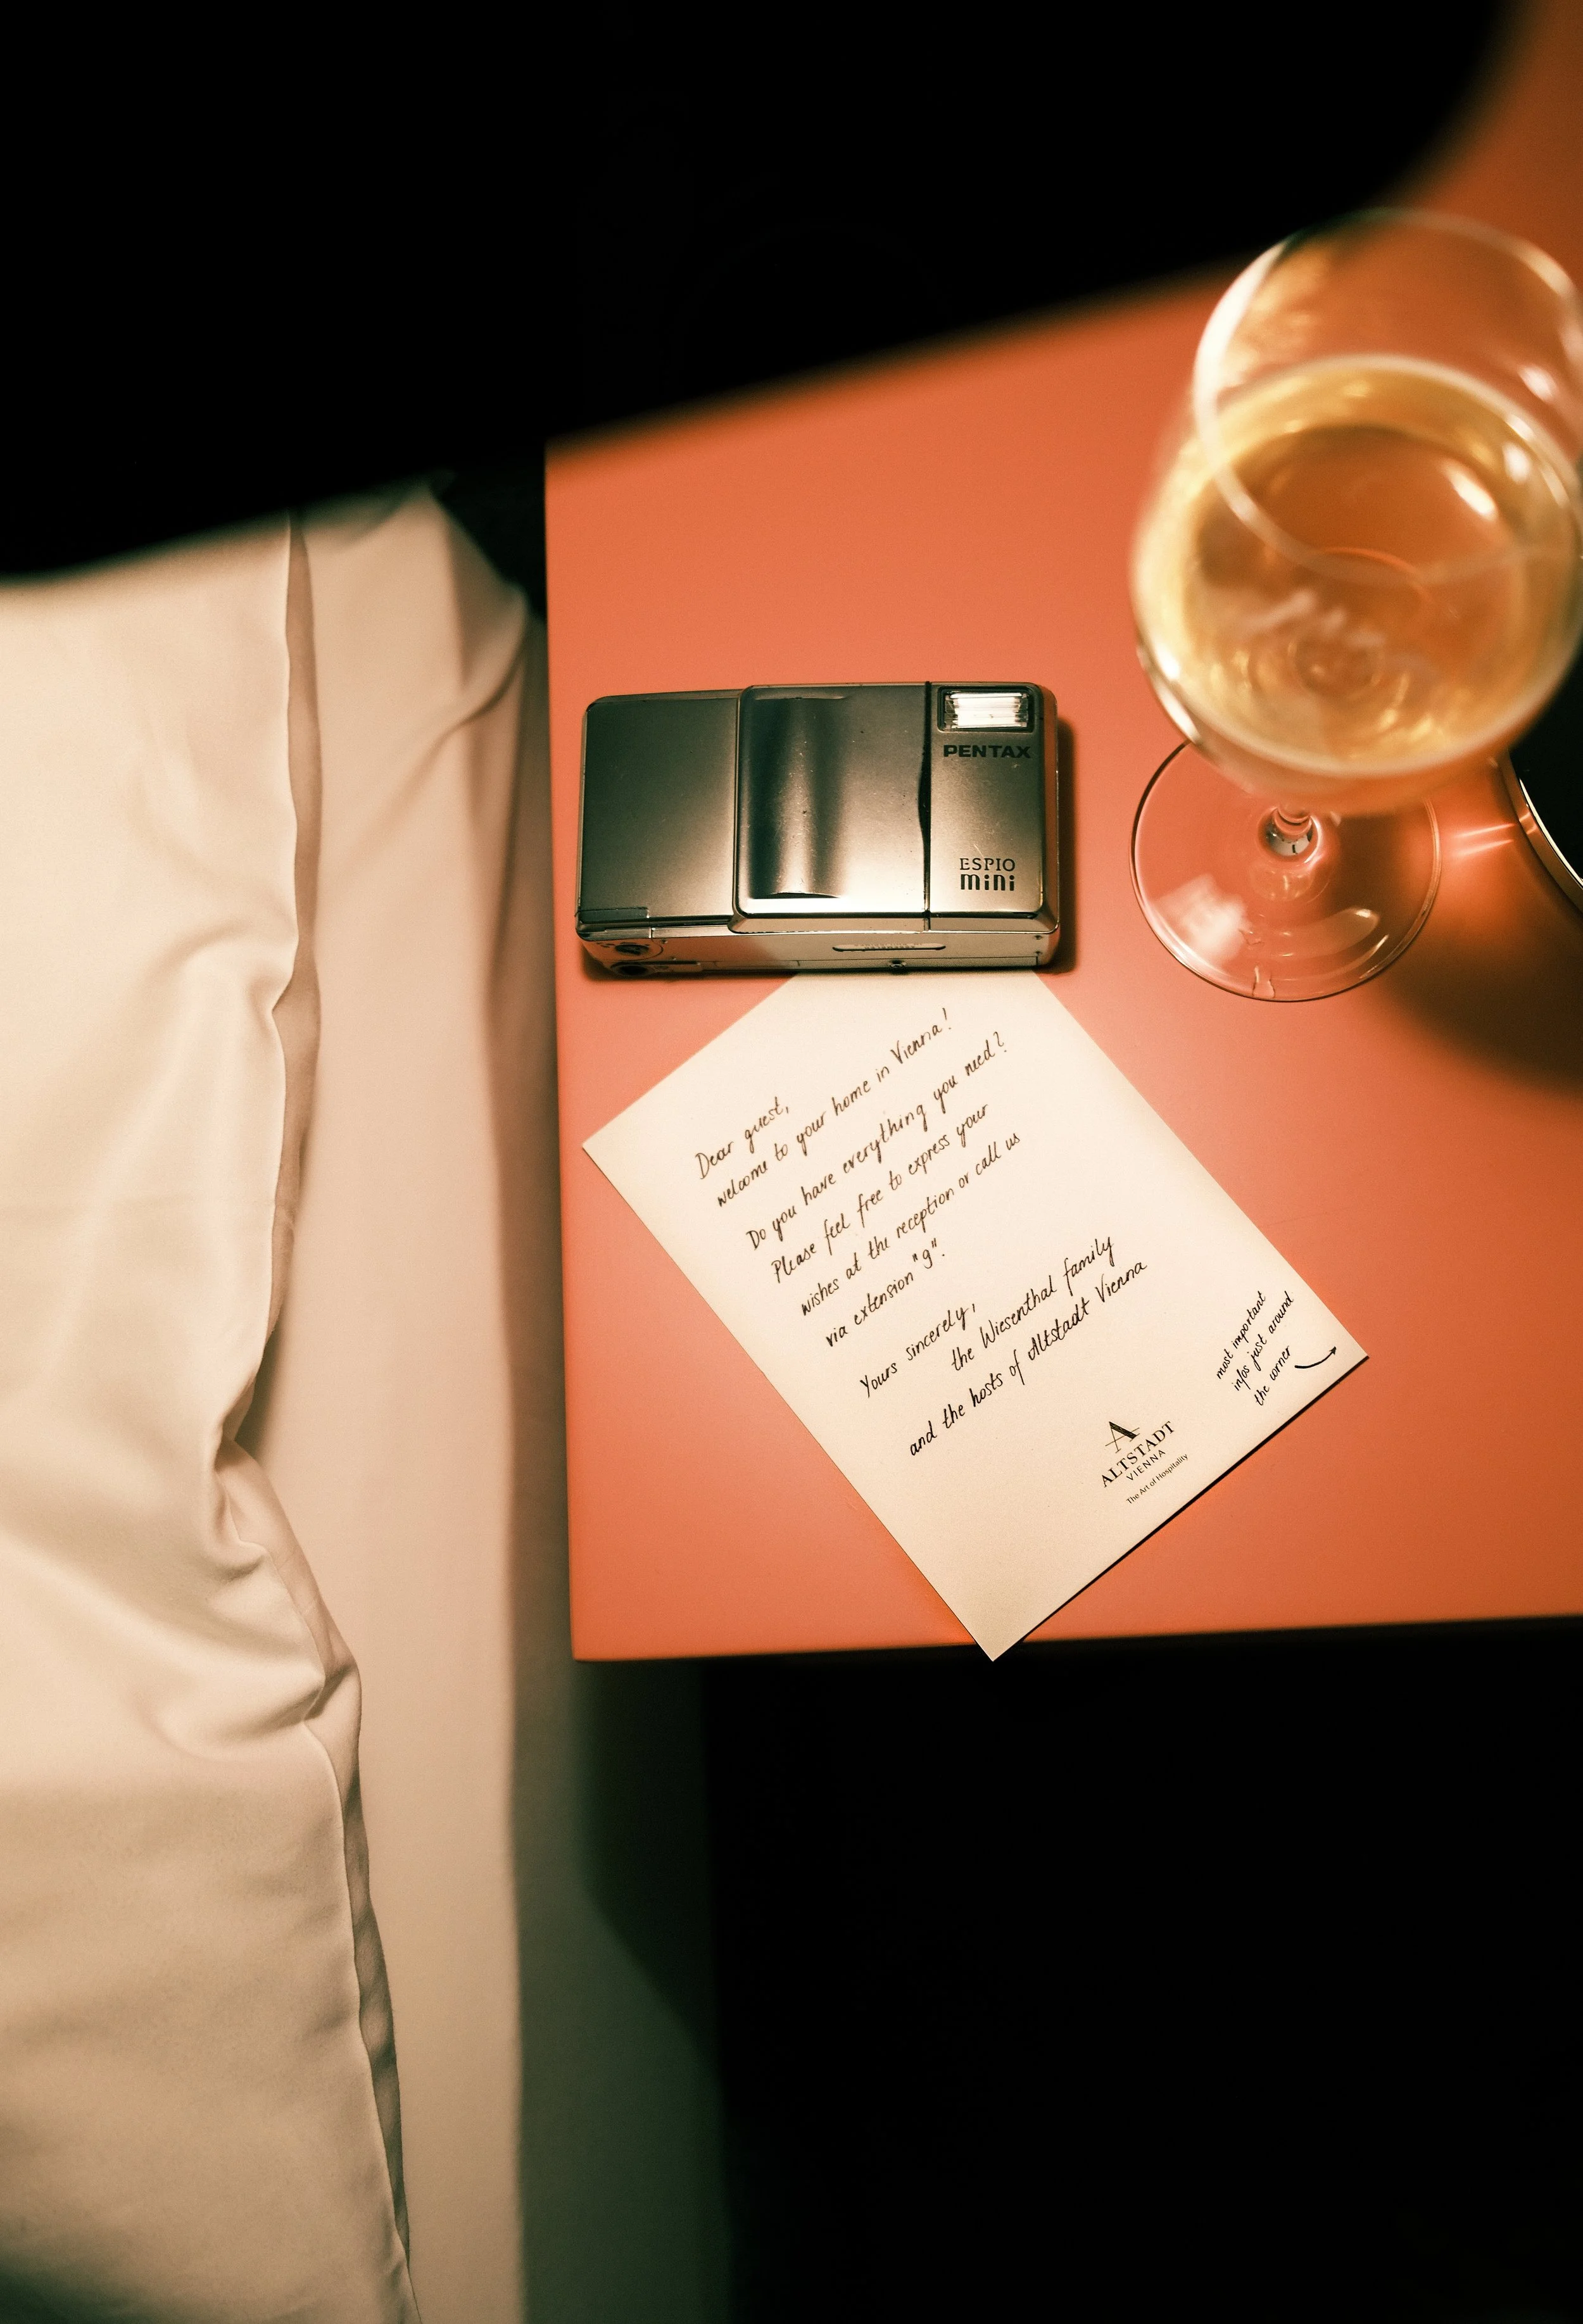 PENTAX
ESPIO
mini
Dear guest,
welcome to your home in Vienna!
Do you have everything you need?
Please feel free to express your
wishes at the reception or call us
via extension "9".
Yours sincerely,
the Wiesenthal family
and the hosts of Altstadt Vienna
most important
infos just around
the corner
A
ALTSTADT
VIENNA
The Art of Hospitality